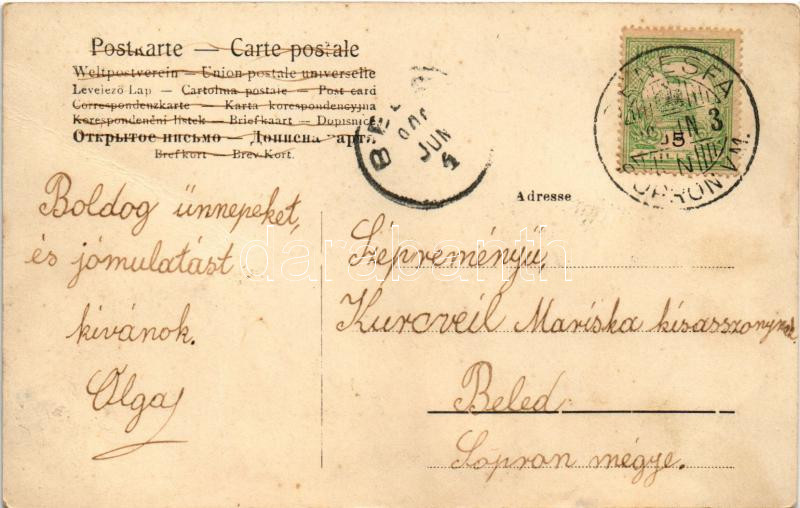 Postkarte — Carte postale
Weltpostverein — Union postale universelle
Levelező Lap — Cartolina postale — Post card
Correspondenzkarte — Karta korespondencyjna
Korespondenční listek — Briefkaart — Dopisnice
Открытое письмо — Дописна карта
Brefkort — Brev-Kort.
BELED
JUN
4
3
5
SOPRON VM.
Adresse
Boldog ünnepeket,
és jómulatást
kivánok.
Olga
Szépreményü,
Kurcveil Mariska kisasszonynak
Beled
Sopron mégye.
darabanth